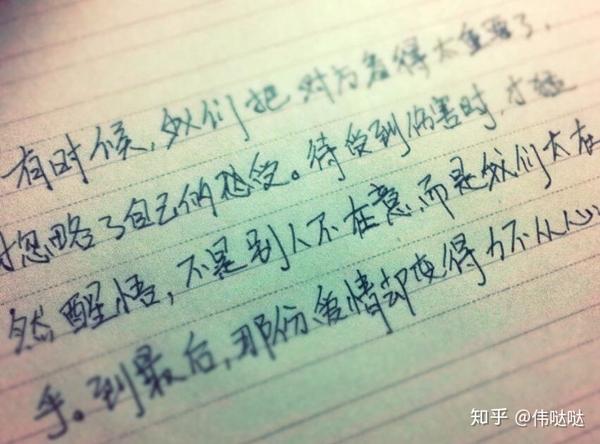 有时候,我们把对方看得太重要了,
忽略了自己的感受。待受到伤害时,才猛
然醒悟,不是别人不在意,而是我们太在
乎。到最后,那份爱情却变得力不从心
知乎 @伟哒哒